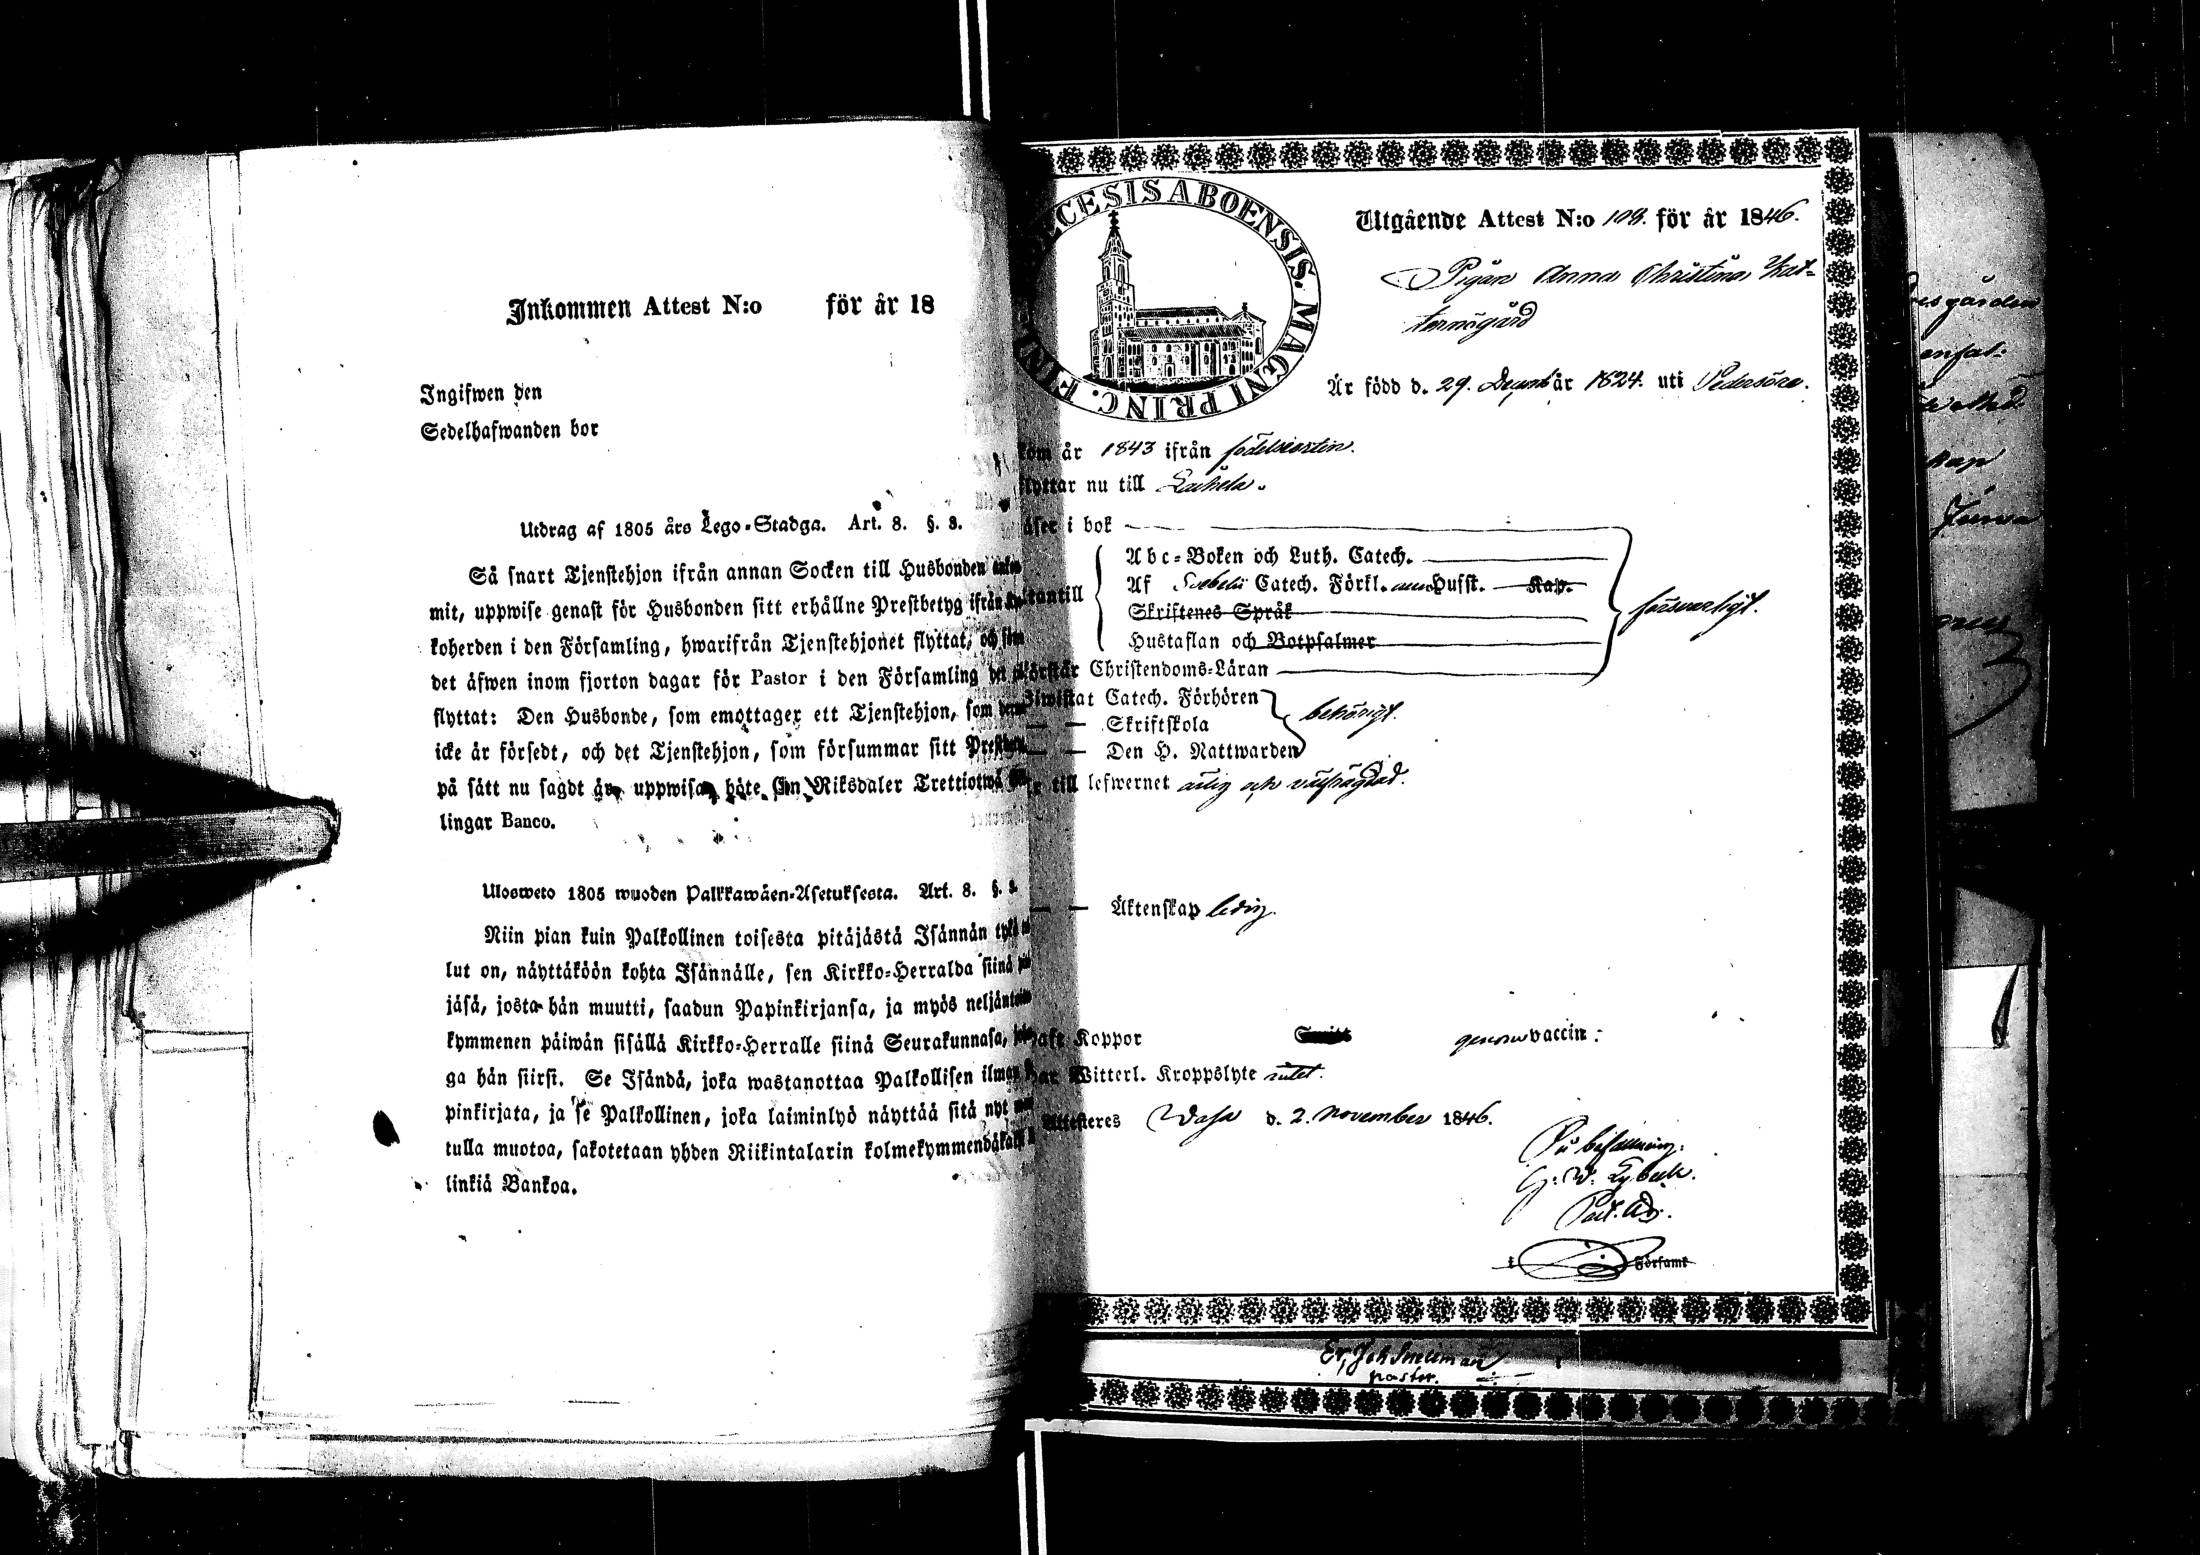 Inkommen Attest N:o för år 18
Ingifwen den
Sedelhafwanden bor
Utdrag af 1805 års Lego-Stadga. Art. 8. §. 3.
Så snart Tjenstehjon ifrån annan Socken till Husbonden
mit, uppwise genast för Husbonden sitt erhållne Prestbetyg ifrån
koherden i den Församling, hwarifrån Tjenstehjonet flyttat, och
det äfwen inom fjorton dagar för Pastor i den Församling det
flyttat: Den Husbonde, som emottager ett Tjenstehjon, som
icke är försedt, och det Tjenstehjon, som försummar sitt
på sätt nu sagdt är, uppwisa, böte En Riksdaler Trettiotwå
lingar Banco.
Ulosweto 1805 wuoden Palkkawäen-Asetuksesta. Art. 8. §. 3.
Niin pian kuin Palkollinen toisesta pitäjästä Isännän
lut on, näyttäköön kohta Isännälle, sen Kirkko-Herralda siinä
jäsä, josta hän muutti, saadun Papinkirjansa, ja myös
kymmenen päiwän sisällä Kirkko-Herralle siinä Seurakunnasa,
ga hän siirsi. Se Isändä, joka wastanottaa Palkollisen ilman
pinkirjata, ja se Palkollinen, joka laiminlyö näyttää sitä nyt
tulla muotoa, sakotetaan yhden Riikintalarin
linkiä Bankoa.
CESIS ABOENSIS. MAGNI PRINC. FIN
Utgående Attest N:o 109. för år 1846.
Pigan Anna Christina
Är född d. 29. år 1824. uti Pedersöre.
kom år 1843 ifrån födelseorten.
flyttar nu till Laihela.
läser i bok
utantill
Abc-Boken och Luth. Catech.
Af Svebelii Catech. Förkl. Husst. Kap.
Skriftenes Språk
Hustaflan och Botpsalmer
försvarligt.
Förstår Christendoms-Läran
Biwistat Catech. Förhören
— — Skriftskola
behörigt.
— — Den H. Nattwarden
Är till lefwernet ärlig och välfrägdad.
— — Äktenskap ledig.
haft Koppor genom vaccin:
har Witterl. Kroppslyte intet.
Attesteres Wasa d. 2. november 1846.
På befallning:
G. W. Lybeck.
Past. Adj.
i Församl
Er, Joh Snellman
pastor.